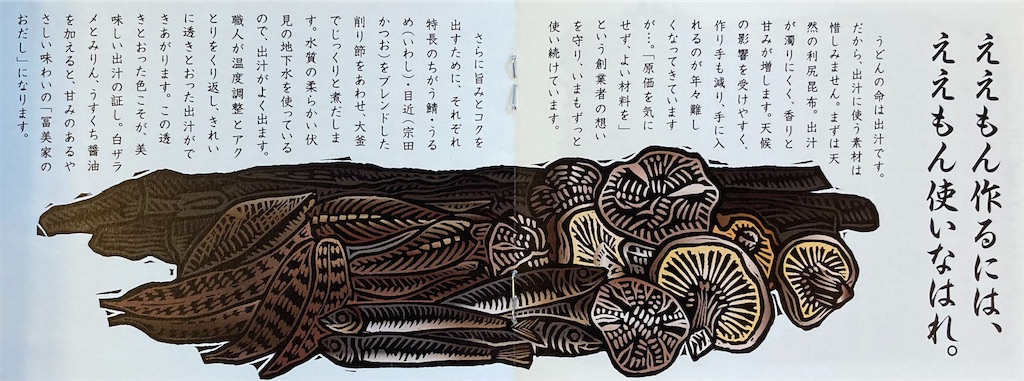 ええもん作るには、
ええもん使いなはれ。
うどんの命は出汁です。
だから、出汁に使う素材は
惜しみません。まずは天
然の利尻昆布。出汁
が濁りにくく、香りと
甘みが増します。天候
の影響を受けやすく、
作り手も減り、手に入
れるのが年々難し
くなってきています
が…。「原価を気に
せず、よい材料を」
という創業者の想い
を守り、いまもずっと
使い続けています。
さらに旨みとコクを
出すために、それぞれ
特長のちがう鯖・うる
め(いわし)・目近(宗田
かつお)をブレンドした
削り節をあわせ、大釜
でじっくりと煮だしま
す。水質の柔らかい伏
見の地下水を使っている
ので、出汁がよく出ます。
職人が温度調整とアク
とりをくり返し、きれい
に透きとおった出汁がで
きあがります。この透
きとおった色こそが、美
味しい出汁の証し。白ザラ
メとみりん、うすくち醤油
を加えると、甘みのあるや
さしい味わいの「冨美家の
おだし」になります。